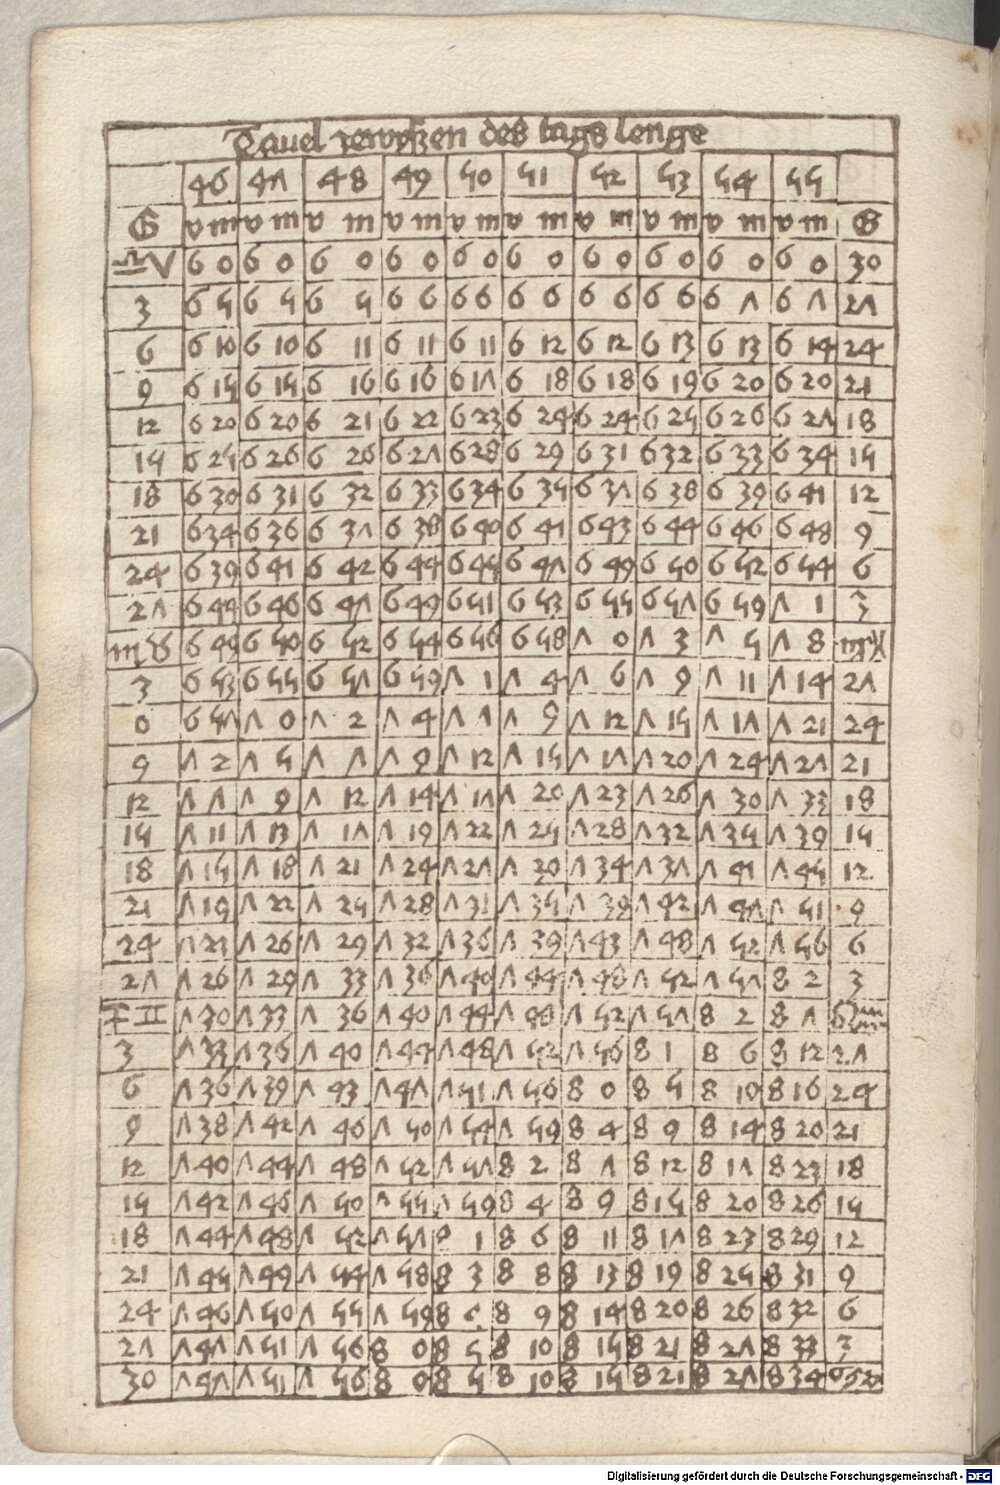 Tauel zewyszen des tags lenge
46 47 48 49 50 51 52 53 54 55
G v m v m v m v m v m v m v m v m v m v m G
♎♈ 6 0 6 0 6 0 6 0 6 0 6 0 6 0 6 0 6 0 6 0 30
3 6 5 6 5 6 5 6 6 6 6 6 6 6 6 6 6 6 7 6 7 27
6 6 10 6 10 6 11 6 11 6 11 6 12 6 12 6 13 6 13 6 14 24
9 6 15 6 15 6 16 6 16 6 17 6 18 6 18 6 19 6 20 6 20 21
12 6 20 6 20 6 21 6 22 6 23 6 24 6 24 6 25 6 26 6 27 18
15 6 25 6 26 6 26 6 27 6 28 6 29 6 31 6 32 6 33 6 34 15
18 6 30 6 31 6 32 6 33 6 34 6 35 6 37 6 38 6 39 6 41 12
21 6 34 6 36 6 37 6 38 6 40 6 41 6 43 6 44 6 46 6 48 9
24 6 39 6 41 6 42 6 44 6 45 6 47 6 49 6 50 6 52 6 54 6
27 6 44 6 46 6 47 6 49 6 51 6 53 6 55 6 57 6 59 7 1 3
♏♉ 6 49 6 50 6 52 6 54 6 56 6 58 7 0 7 3 7 5 7 8
3 6 53 6 55 6 57 6 59 7 1 7 4 7 6 7 9 7 11 7 14 27
0 6 57 7 0 7 2 7 4 7 7 7 9 7 12 7 15 7 17 7 21 24
9 7 2 7 5 7 7 7 9 7 12 7 15 7 17 7 20 7 24 7 27 21
12 7 7 7 9 7 12 7 14 7 17 7 20 7 23 7 26 7 30 7 33 18
15 7 11 7 13 7 17 7 19 7 22 7 25 7 28 7 32 7 35 7 39 15
18 7 15 7 18 7 21 7 24 7 27 7 30 7 34 7 37 7 41 7 45 12
21 7 19 7 22 7 25 7 28 7 31 7 35 7 39 7 42 7 47 7 51 9
24 7 23 7 26 7 29 7 32 7 36 7 39 7 43 7 48 7 52 7 56 6
27 7 26 7 29 7 33 7 36 7 40 7 44 7 48 7 52 7 57 8 2 3
♐♊ 7 30 7 33 7 36 7 40 7 44 7 48 7 52 7 57 8 2 8 7 ♌♒
3 7 33 7 36 7 40 7 44 7 48 7 52 7 56 8 1 8 6 8 12 27
6 7 36 7 39 7 43 7 47 7 51 7 56 8 0 8 5 8 10 8 16 24
9 7 38 7 42 7 46 7 50 7 54 7 59 8 4 8 9 8 14 8 20 21
12 7 40 7 44 7 48 7 52 7 57 8 2 8 7 8 12 8 17 8 23 18
15 7 42 7 46 7 50 7 55 7 59 8 4 8 9 8 15 8 20 8 26 15
18 7 44 7 48 7 52 7 57 8 1 8 6 8 11 8 17 8 23 8 29 12
21 7 45 7 49 7 54 7 58 8 3 8 8 8 13 8 19 8 25 8 31 9
24 7 46 7 50 7 55 7 59 8 8 9 8 14 8 20 8 26 8 32 6
27 7 47 7 51 7 56 8 0 8 5 8 10 8 15 8 21 8 27 8 33 3
30 7 47 7 51 7 56 8 0 8 5 8 10 8 15 8 21 8 27 8 34 ♋♑
Digitalisierung gefördert durch die Deutsche Forschungsgemeinschaft - DFG